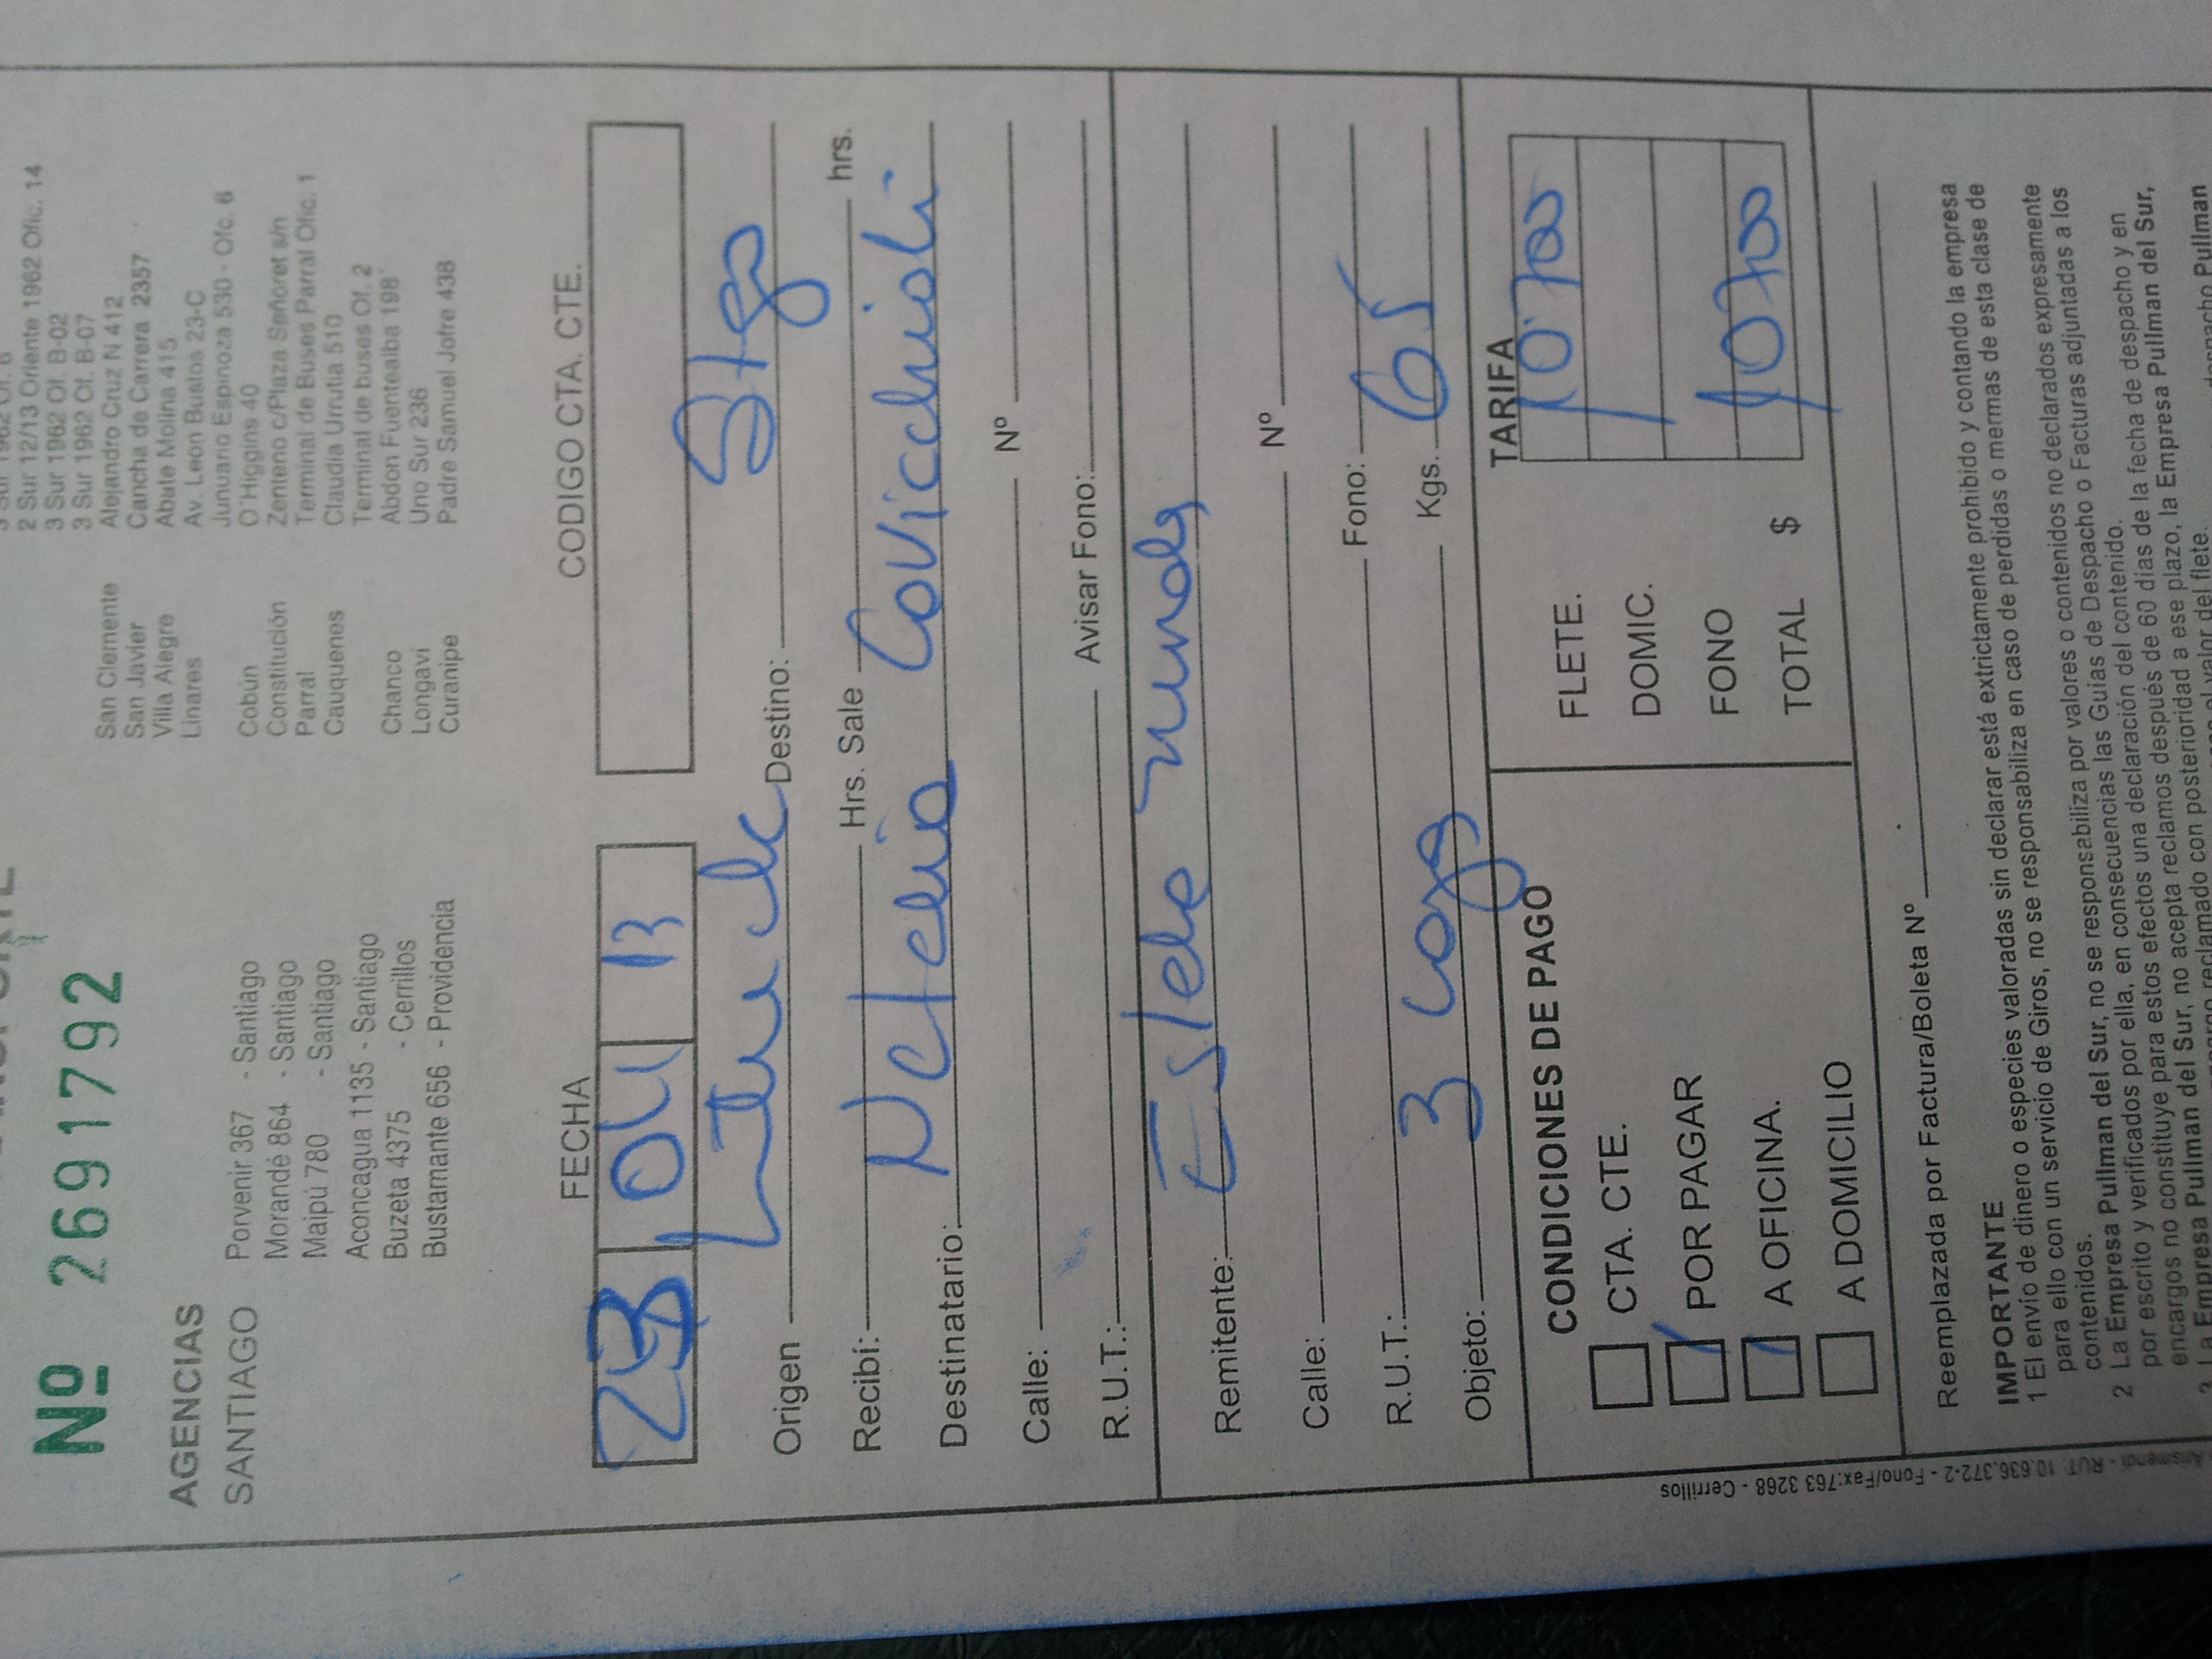 Nº 2691792
AGENCIAS
SANTIAGO Porvenir 367 - Santiago
Morandé 864 - Santiago
Maipú 780 - Santiago
Aconcagua 1135 - Santiago
Buzeta 4375 - Cerrillos
Bustamante 656 - Providencia
2 Sur 12/13 Oriente 1962 Ofic. 14
3 Sur 1962 Of. B-02
3 Sur 1962 Of. B-07
San Clemente Alejandro Cruz N 412
San Javier Cancha de Carrera 2357
Villa Alegre Abate Molina 415
Linares Av. Leon Bustos 23-C
Junuario Espinoza 530 - Ofc. 6
Cobun O'Higgins 40
Constitución Zenteno c/Plaza Señoret s/n
Parral Terminal de Buses Parral Ofic. 1
Cauquenes Claudia Urrutia 510
Terminal de buses Of. 2
Chanco Abdon Fuentealba 198
Longavi Uno Sur 236
Curanipe Padre Samuel Jofre 438
FECHA CODIGO CTA. CTE.
04 13
Origen Destino: Stgo
Recibí: Hrs. Sale hrs.
Destinatario: Covicchioli
Calle: Nº
R.U.T.: Avisar Fono:
Remitente:
Calle: Nº
R.U.T.: Fono:
Objeto: 3 Kgs. 65
CONDICIONES DE PAGO TARIFA
CTA. CTE. FLETE. 10.700
POR PAGAR DOMIC.
A OFICINA. FONO
A DOMICILIO TOTAL $ 10700
Reemplazada por Factura/Boleta Nº
IMPORTANTE
1 El envío de dinero o especies valoradas sin declarar está extrictamente prohibido y contando la empresa
para ello con un servicio de Giros, no se responsabiliza en caso de perdidas o mermas de esta clase de
contenidos.
2 La Empresa Pullman del Sur, no se responsabiliza por valores o contenidos no declarados expresamente
por escrito y verificados por ella, en consecuencias las Guías de Despacho o Facturas adjuntadas a los
encargos no constituye para estos efectos una declaración del contenido.
La Empresa Pullman del Sur, no acepta reclamos después de 60 días de la fecha de despacho y en
reclamado con posterioridad a ese plazo, la Empresa Pullman del Sur,
valor del flete.
despacho Pullman
RUT: 10.636.372-2 - Fono/Fax:763 3268 - Cerrillos